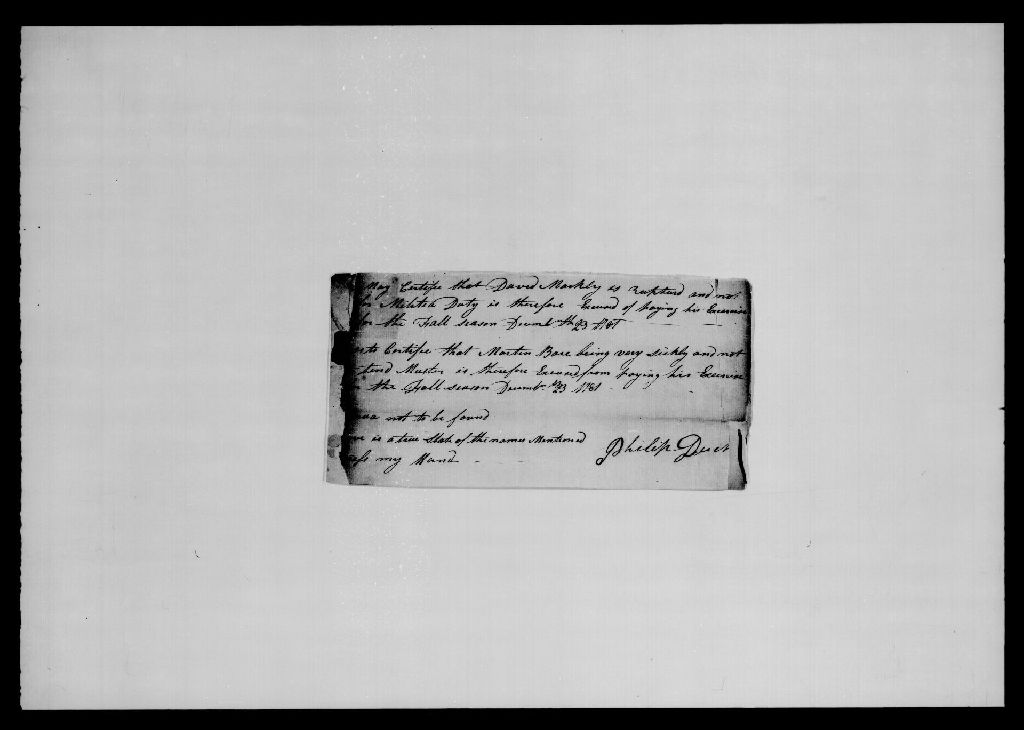 May Certife that David Markly is rupturd and not
for Militia Duty is therefore Excused of paying his Excercise
for the Fall season Decemb 23
to Certifie that Martin Bare being very sickly and not
attend Muster is therefore Excused from paying his Excercise
the Fall season Decemb 23 1781
not to be found
is a true State of the names Mentioned
my Hand Philip